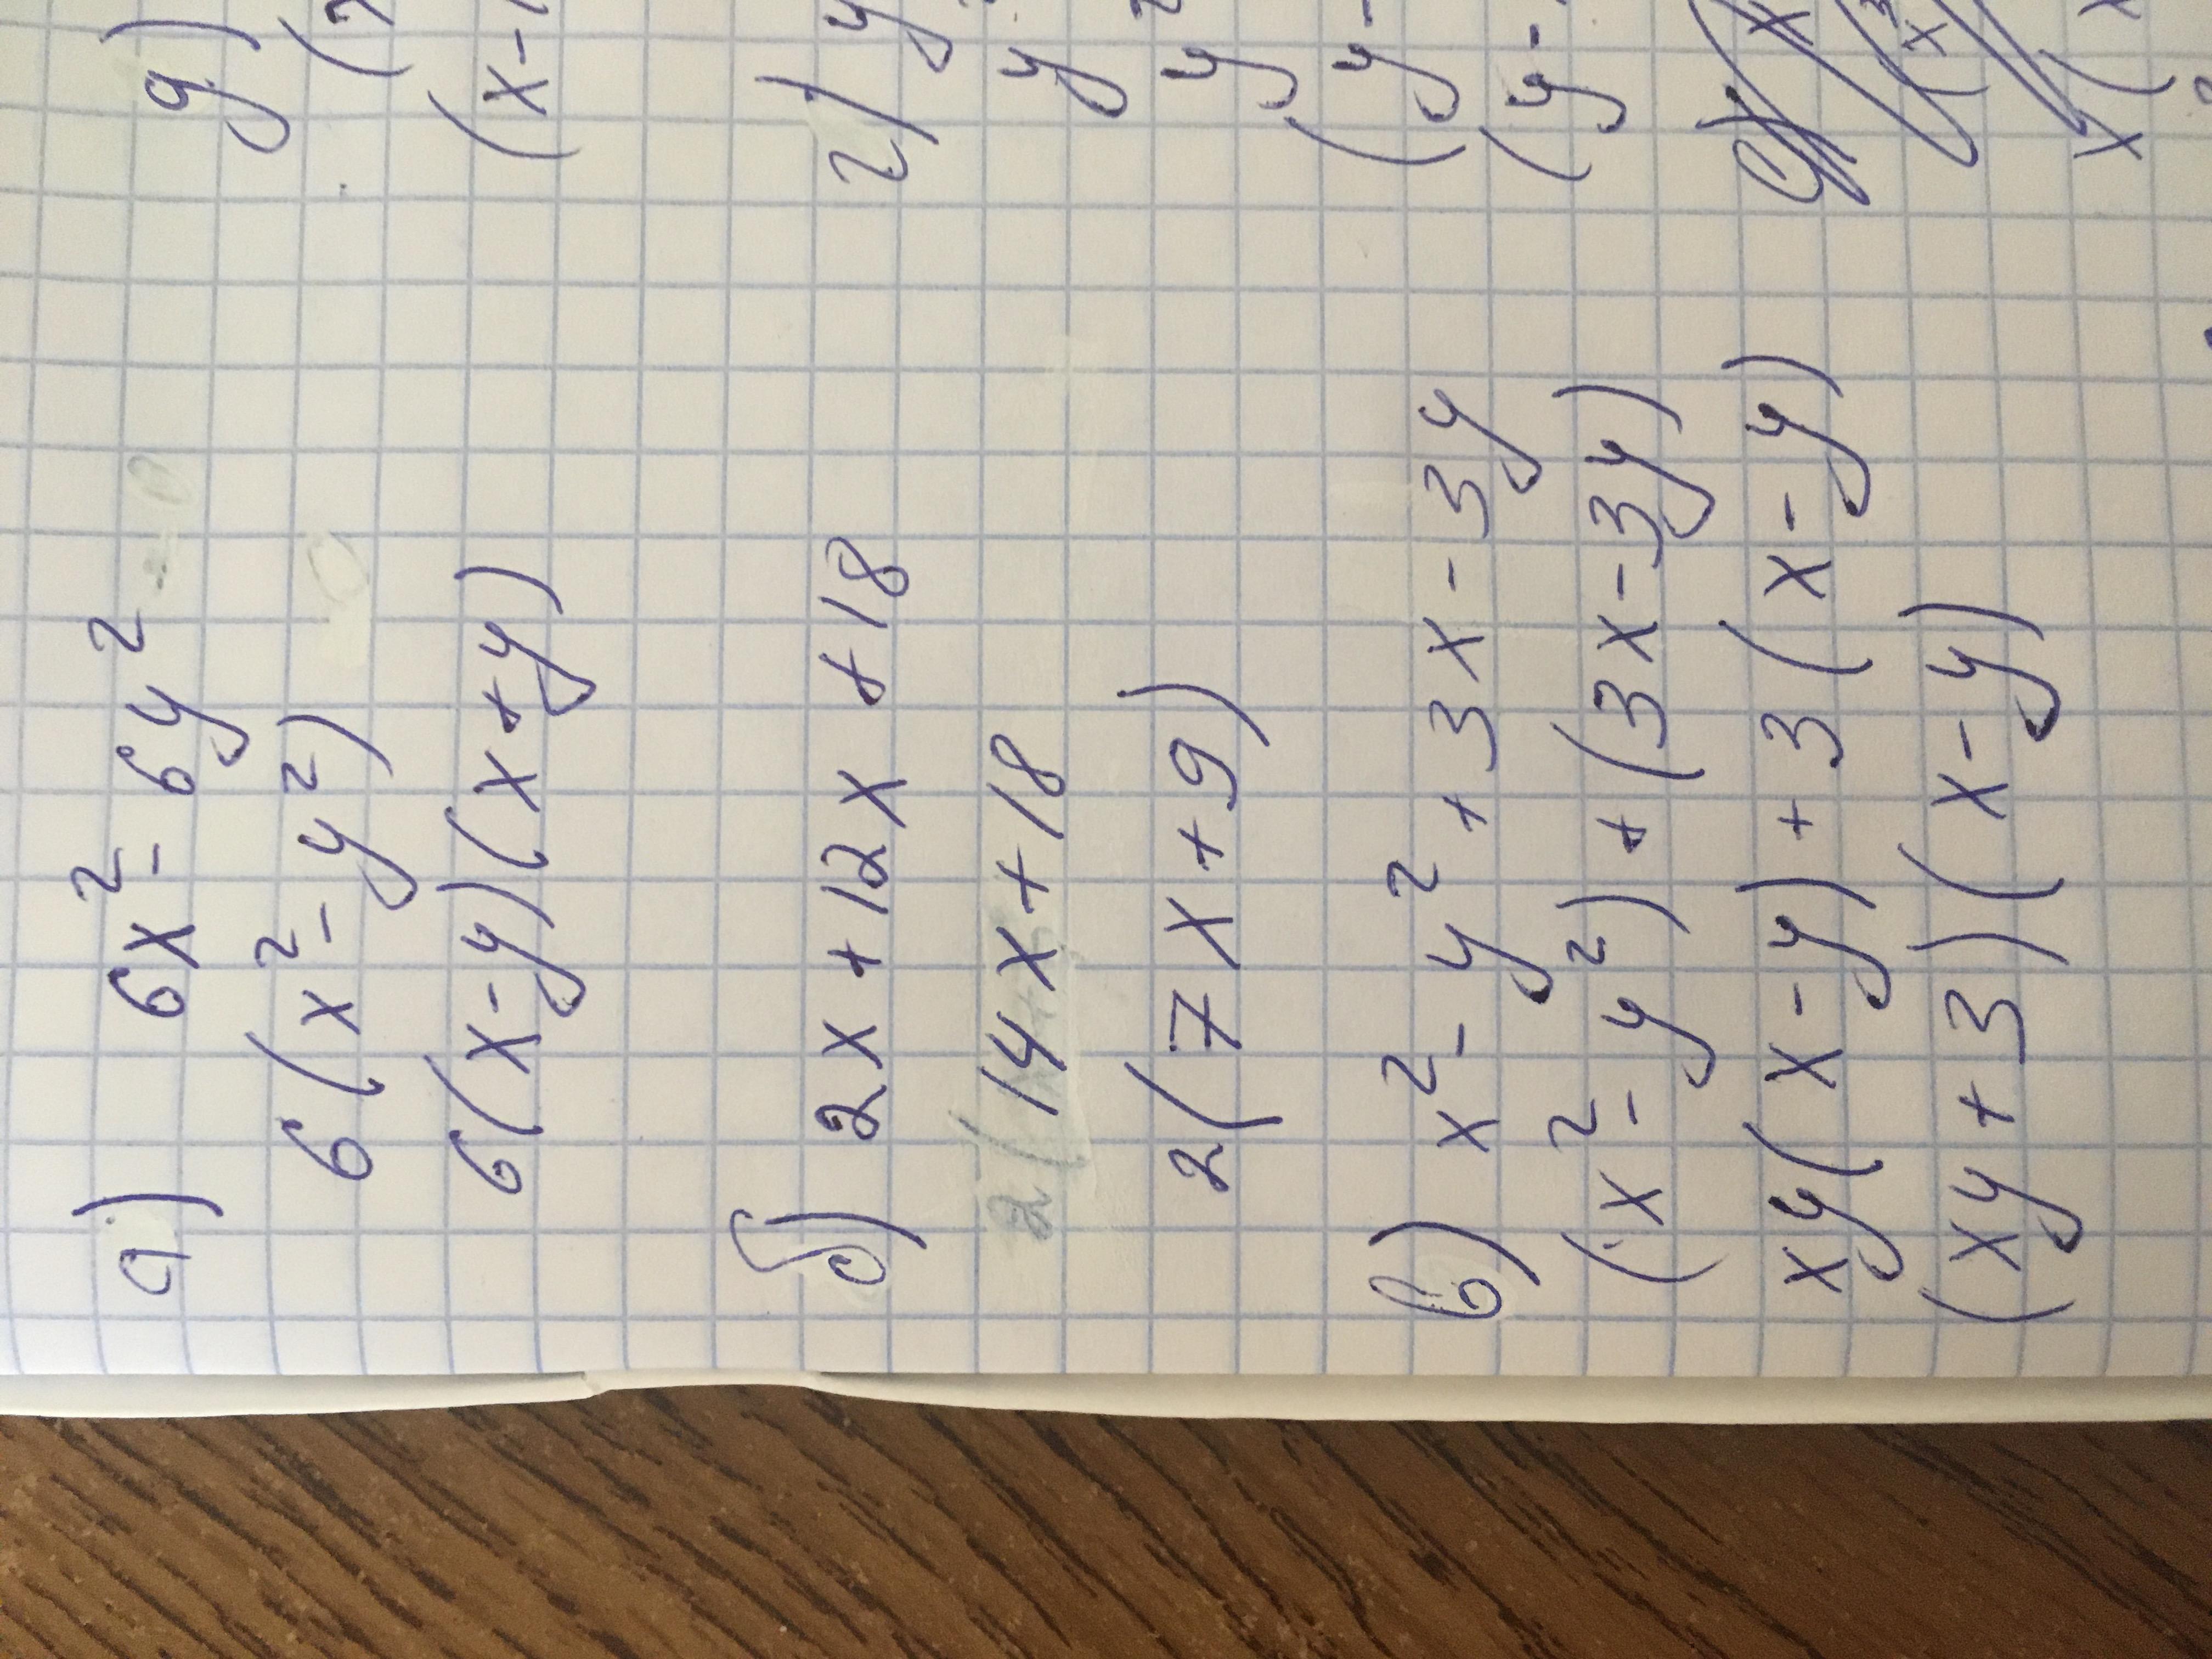 а) 6x² - 6y²
6(x² - y²)
6(x-y)(x+y)
б) 2x + 12x + 18
14x + 18
2(7x+9)
в) x² - y² + 3x - 3y
(x² - y²) + (3x - 3y)
xy(x-y) + 3(x-y)
(xy + 3)(x-y)
г) y
y
y
(y-
(y-
д)
(x-
x(